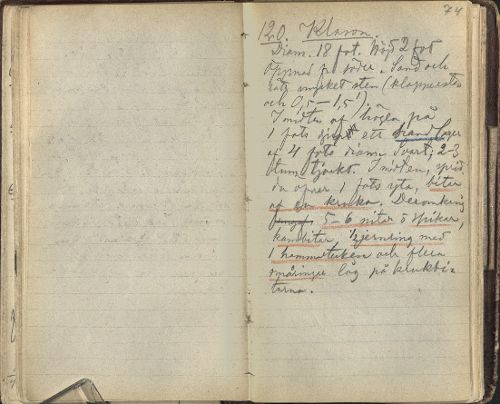 74
120. Klason.
Diam. 18 fot. Höjd 2 fot
Öppnad fr. söder. Sand och
rätt mycket sten (klappersten
och 0,5–1,5').
I midten af högen på
1 fots djup ett brandlager
af 4 fots diam. Svart; 2–3
tum tjockt. I midten, spridda
öfver 1 fots yta, bitar
af en kruka. Deromkring
5–6 nitar o spikar,
kambitar, hjernring med
1 hammartecken och flera
småringar låg på krukbi-
tarna.